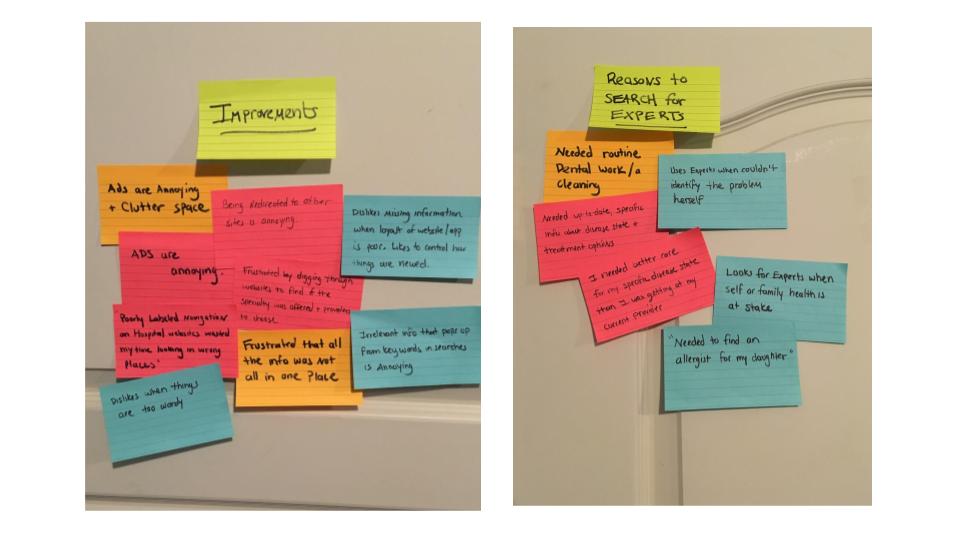 Improvements
Ads are Annoying
+ Clutter space
Being Redirected to other
sites is annoying.
Dislikes Missing information
when layout of website/app
is poor. Likes to control how
things are viewed.
ADS are
annoying.
Frustrated by digging through
websites to find if the
specialty was offered + providers
to choose
Poorly Labeled Navigation
on Hospital websites wasted
my time looking in wrong
Places"
Frustrated that all
the info was not
all in one Place
Irrelevant info that pops up
from keywords in searches
is Annoying
Dislikes when things
are too wordy
Reasons to
SEARCH for
EXPERTS
Needed routine
Dental Work/a
Cleaning
Uses Experts when couldn't
identify the problem
herself
Needed up-to-date, specific
info about disease state +
treatment options
I needed better care
for my specific disease state
than I was getting at my
current provider
Looks for Experts when
self or family health is
at stake
"Needed to find an
allergist for my daughter"